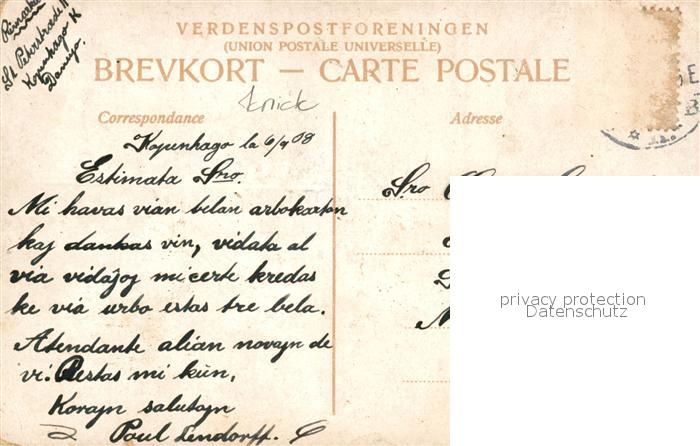 St Pederstræde
Kopenhago K
Danujo.
VERDENSPOSTFORENINGEN
(UNION POSTALE UNIVERSELLE)
BREVKORT — CARTE POSTALE
knick
Correspondance
Adresse
Kopenhago la 6/9 08
Estimata Sro.
Mi havas vian belan arbokarton
kaj dankas vin, vidata al
via vidaĵoj mi certe kredas
ke via urbo estas tre bela.
Atendante alian novajn de
vi. Restas mi kun,
Korajn salutajn
Poul Lendorff.
Sro
privacy protection
Datenschutz